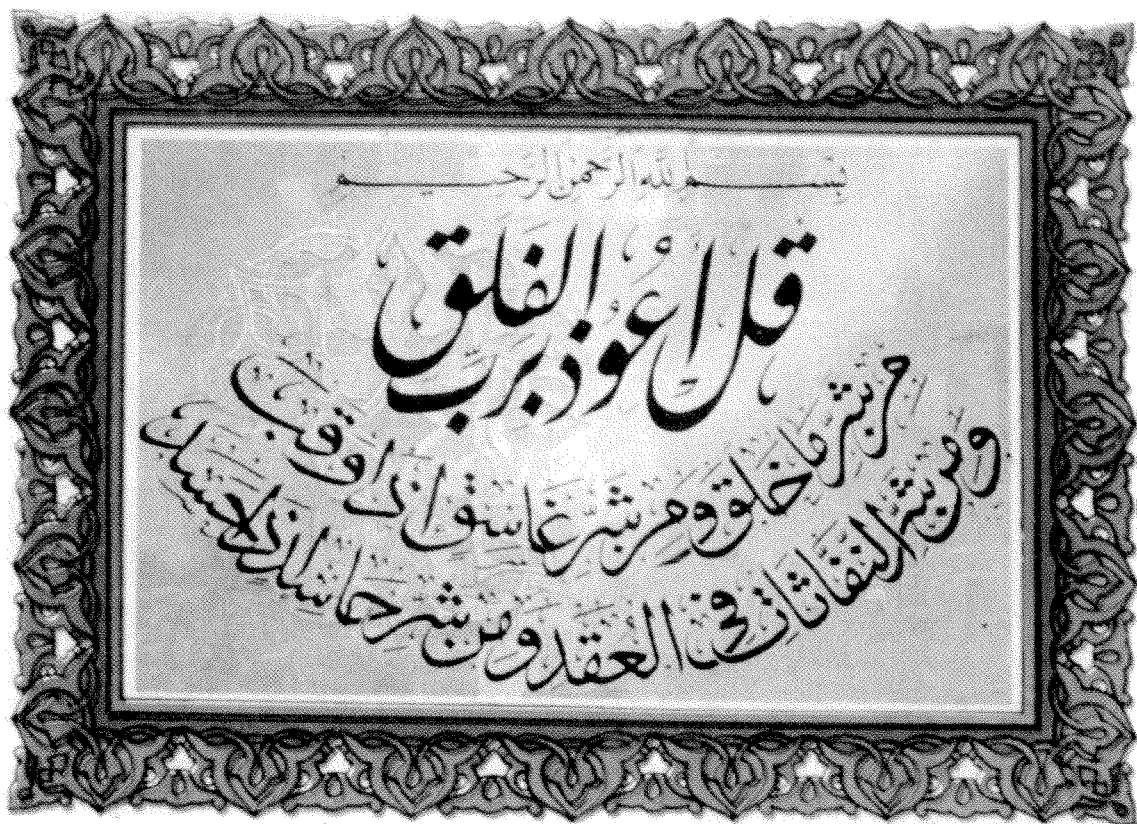 بسم الله الرحمن الرحيم
قل اعوذ برب الفلق
من شر ما خلق ومن شر غاسق اذا وقب
ومن شر النفاثات في العقد ومن شر حاسد اذا حسد